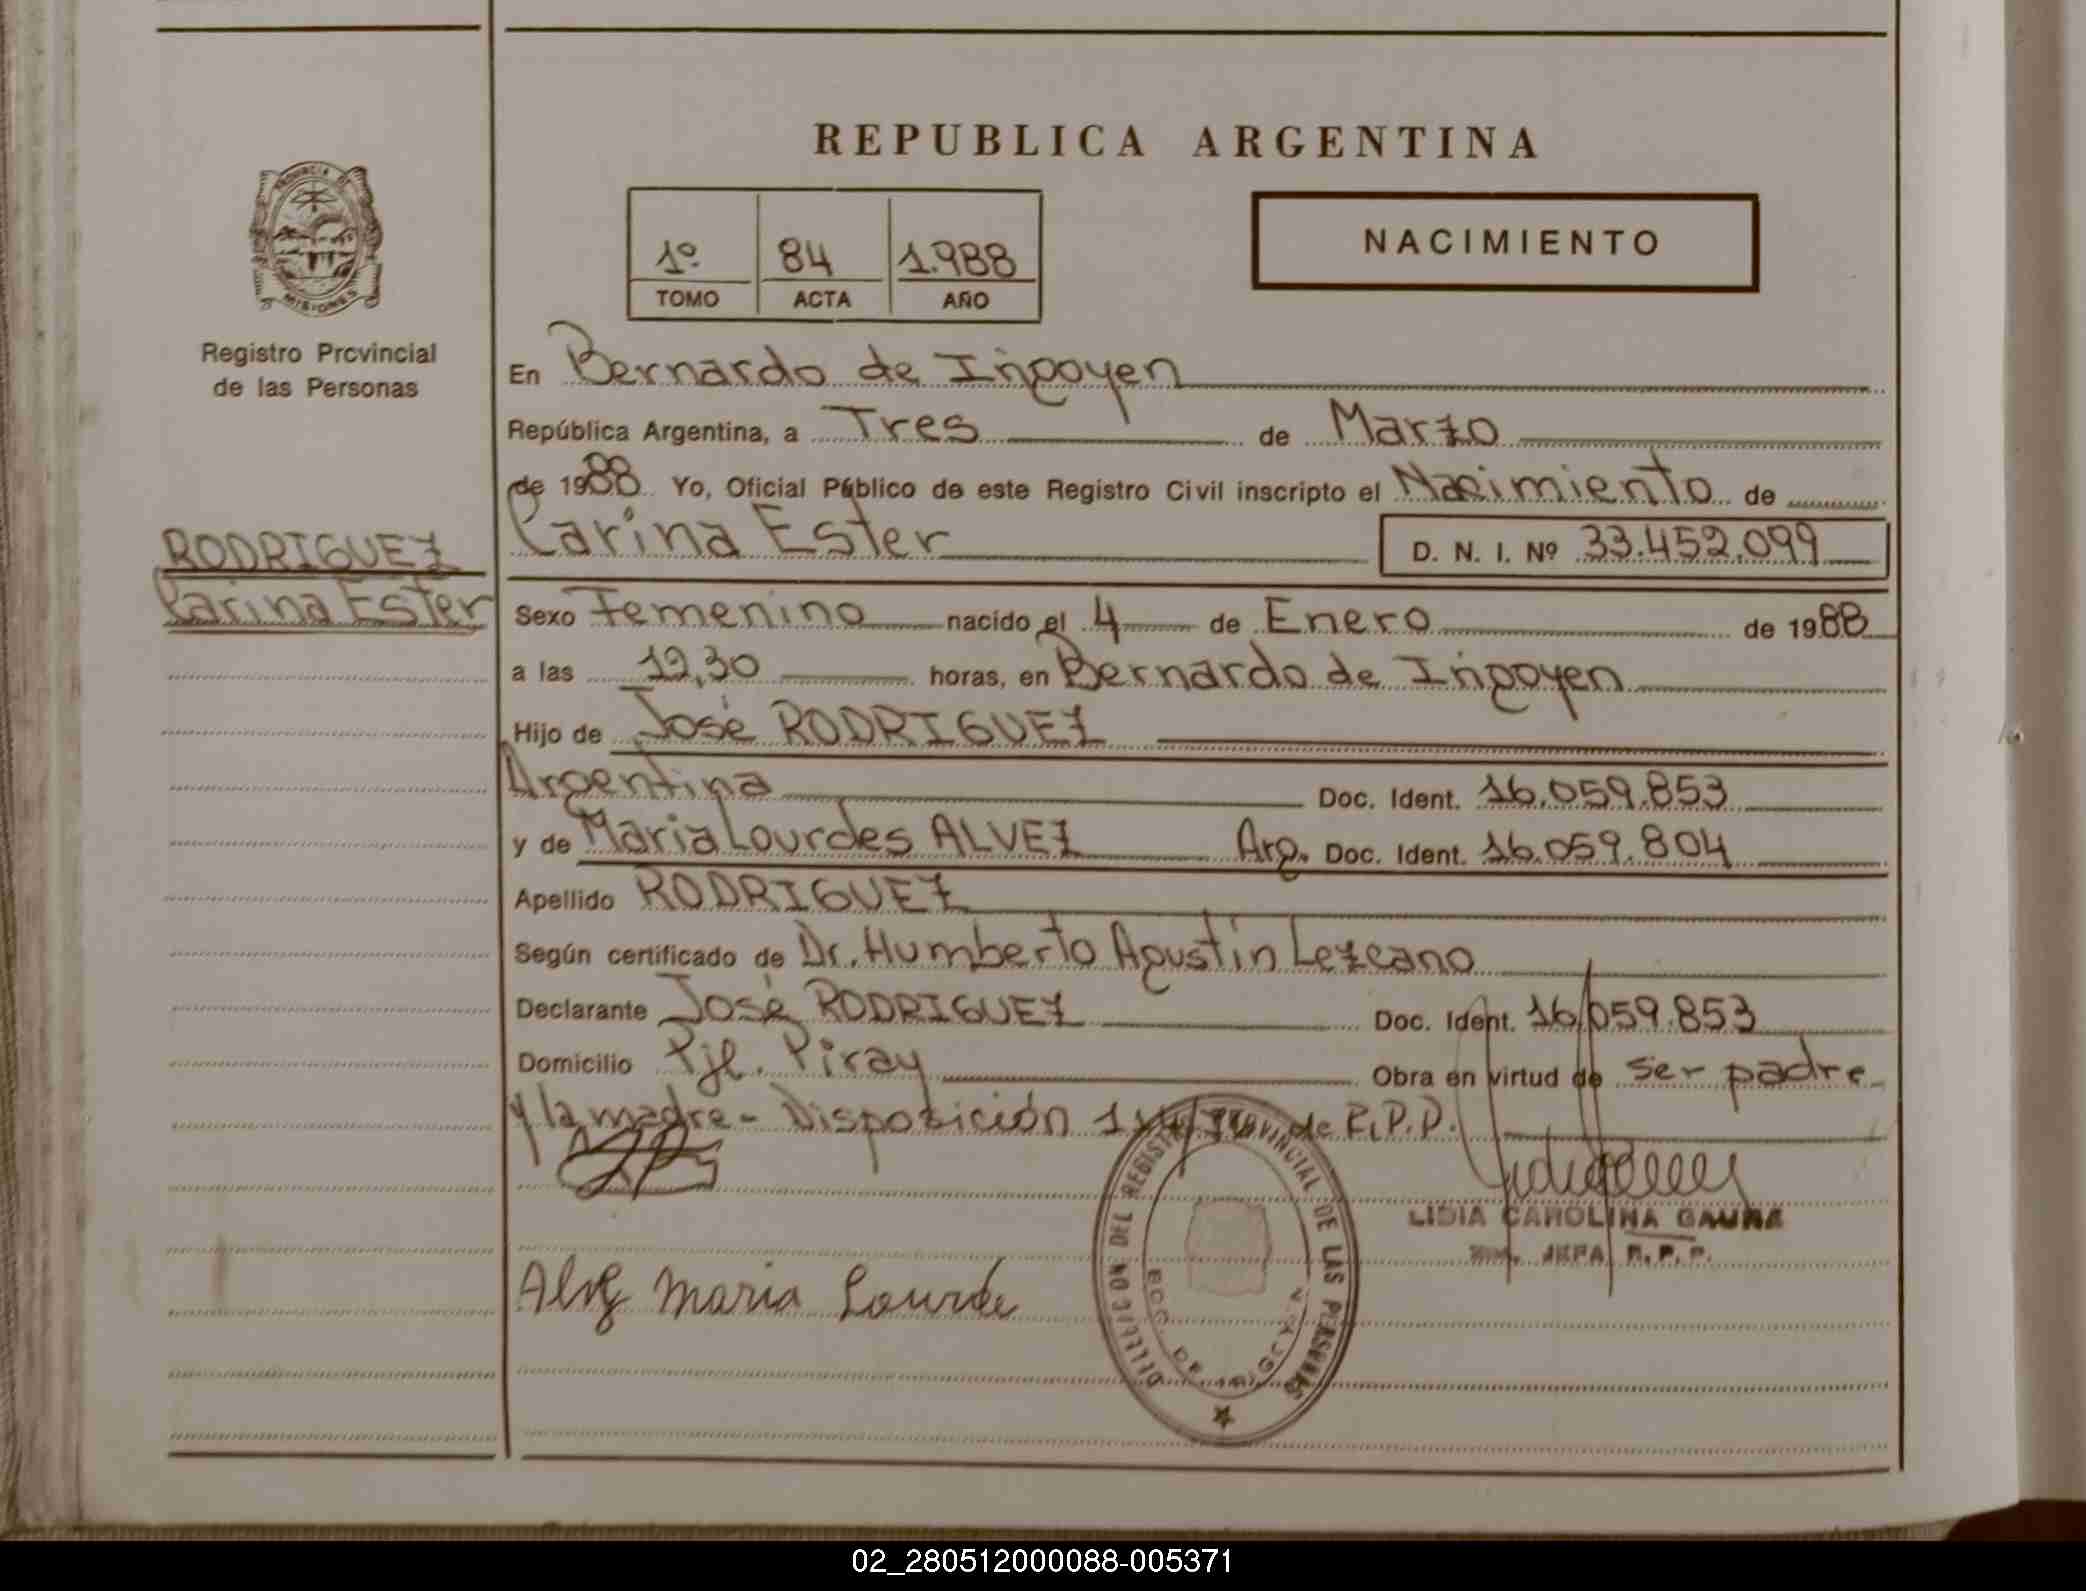 REPUBLICA ARGENTINA
PROVINCIA DE
MISIONES
Registro Provincial
de las Personas
1º 84 1.988
TOMO ACTA AÑO
NACIMIENTO
En Bernardo de Irigoyen
República Argentina, a Tres de Marzo
de 1988 Yo, Oficial Público de este Registro Civil inscripto el Nacimiento de
Carina Ester D. N. I. Nº 33.452.099
RODRIGUEZ
Carina Ester
Sexo Femenino nacido el 4 de Enero de 1988
a las 12,30 horas, en Bernardo de Irigoyen
Hijo de José RODRIGUEZ
Argentina Doc. Ident. 16.059.853
y de Maria Lourdes ALVEZ Arg. Doc. Ident. 16.059.804
Apellido RODRIGUEZ
Según certificado de Dr. Humberto Agustín Lezcano
Declarante José RODRIGUEZ Doc. Ident. 16.059.853
Domicilio Pje. Piray Obra en virtud de ser padre
y la madre - Disposición de R.P.P.
LIDIA CAROLINA
JEFA R. P. P.
Alvez Maria Lourde
DEL REGISTRO PROVINCIAL DE LAS PERSONAS
02_280512000088-005371